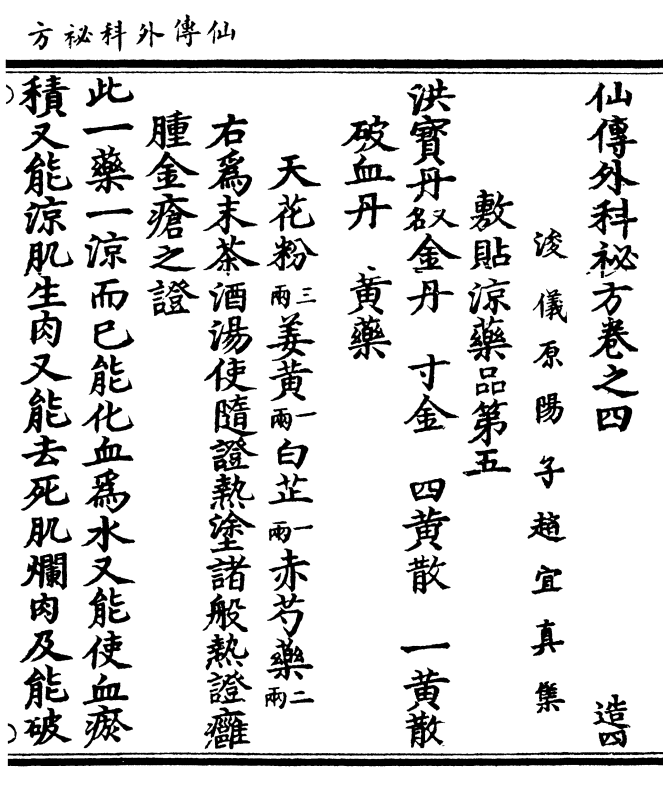 仙傳外科祕方
仙傳外科祕方卷之四 造四
浚儀原陽子趙宜真集
敷貼涼藥品第五
洪寶丹又名金丹 寸金 四黃散 一黃散
破血丹 黃藥
天花粉三兩姜黃一兩白芷一兩赤芍藥二兩
右爲末茶酒湯使隨證熱塗諸般熱證癰
腫金瘡之證
此一藥一涼而已能化血爲水又能使血瘀
積又能涼肌生肉又能去死肌爛肉及能破